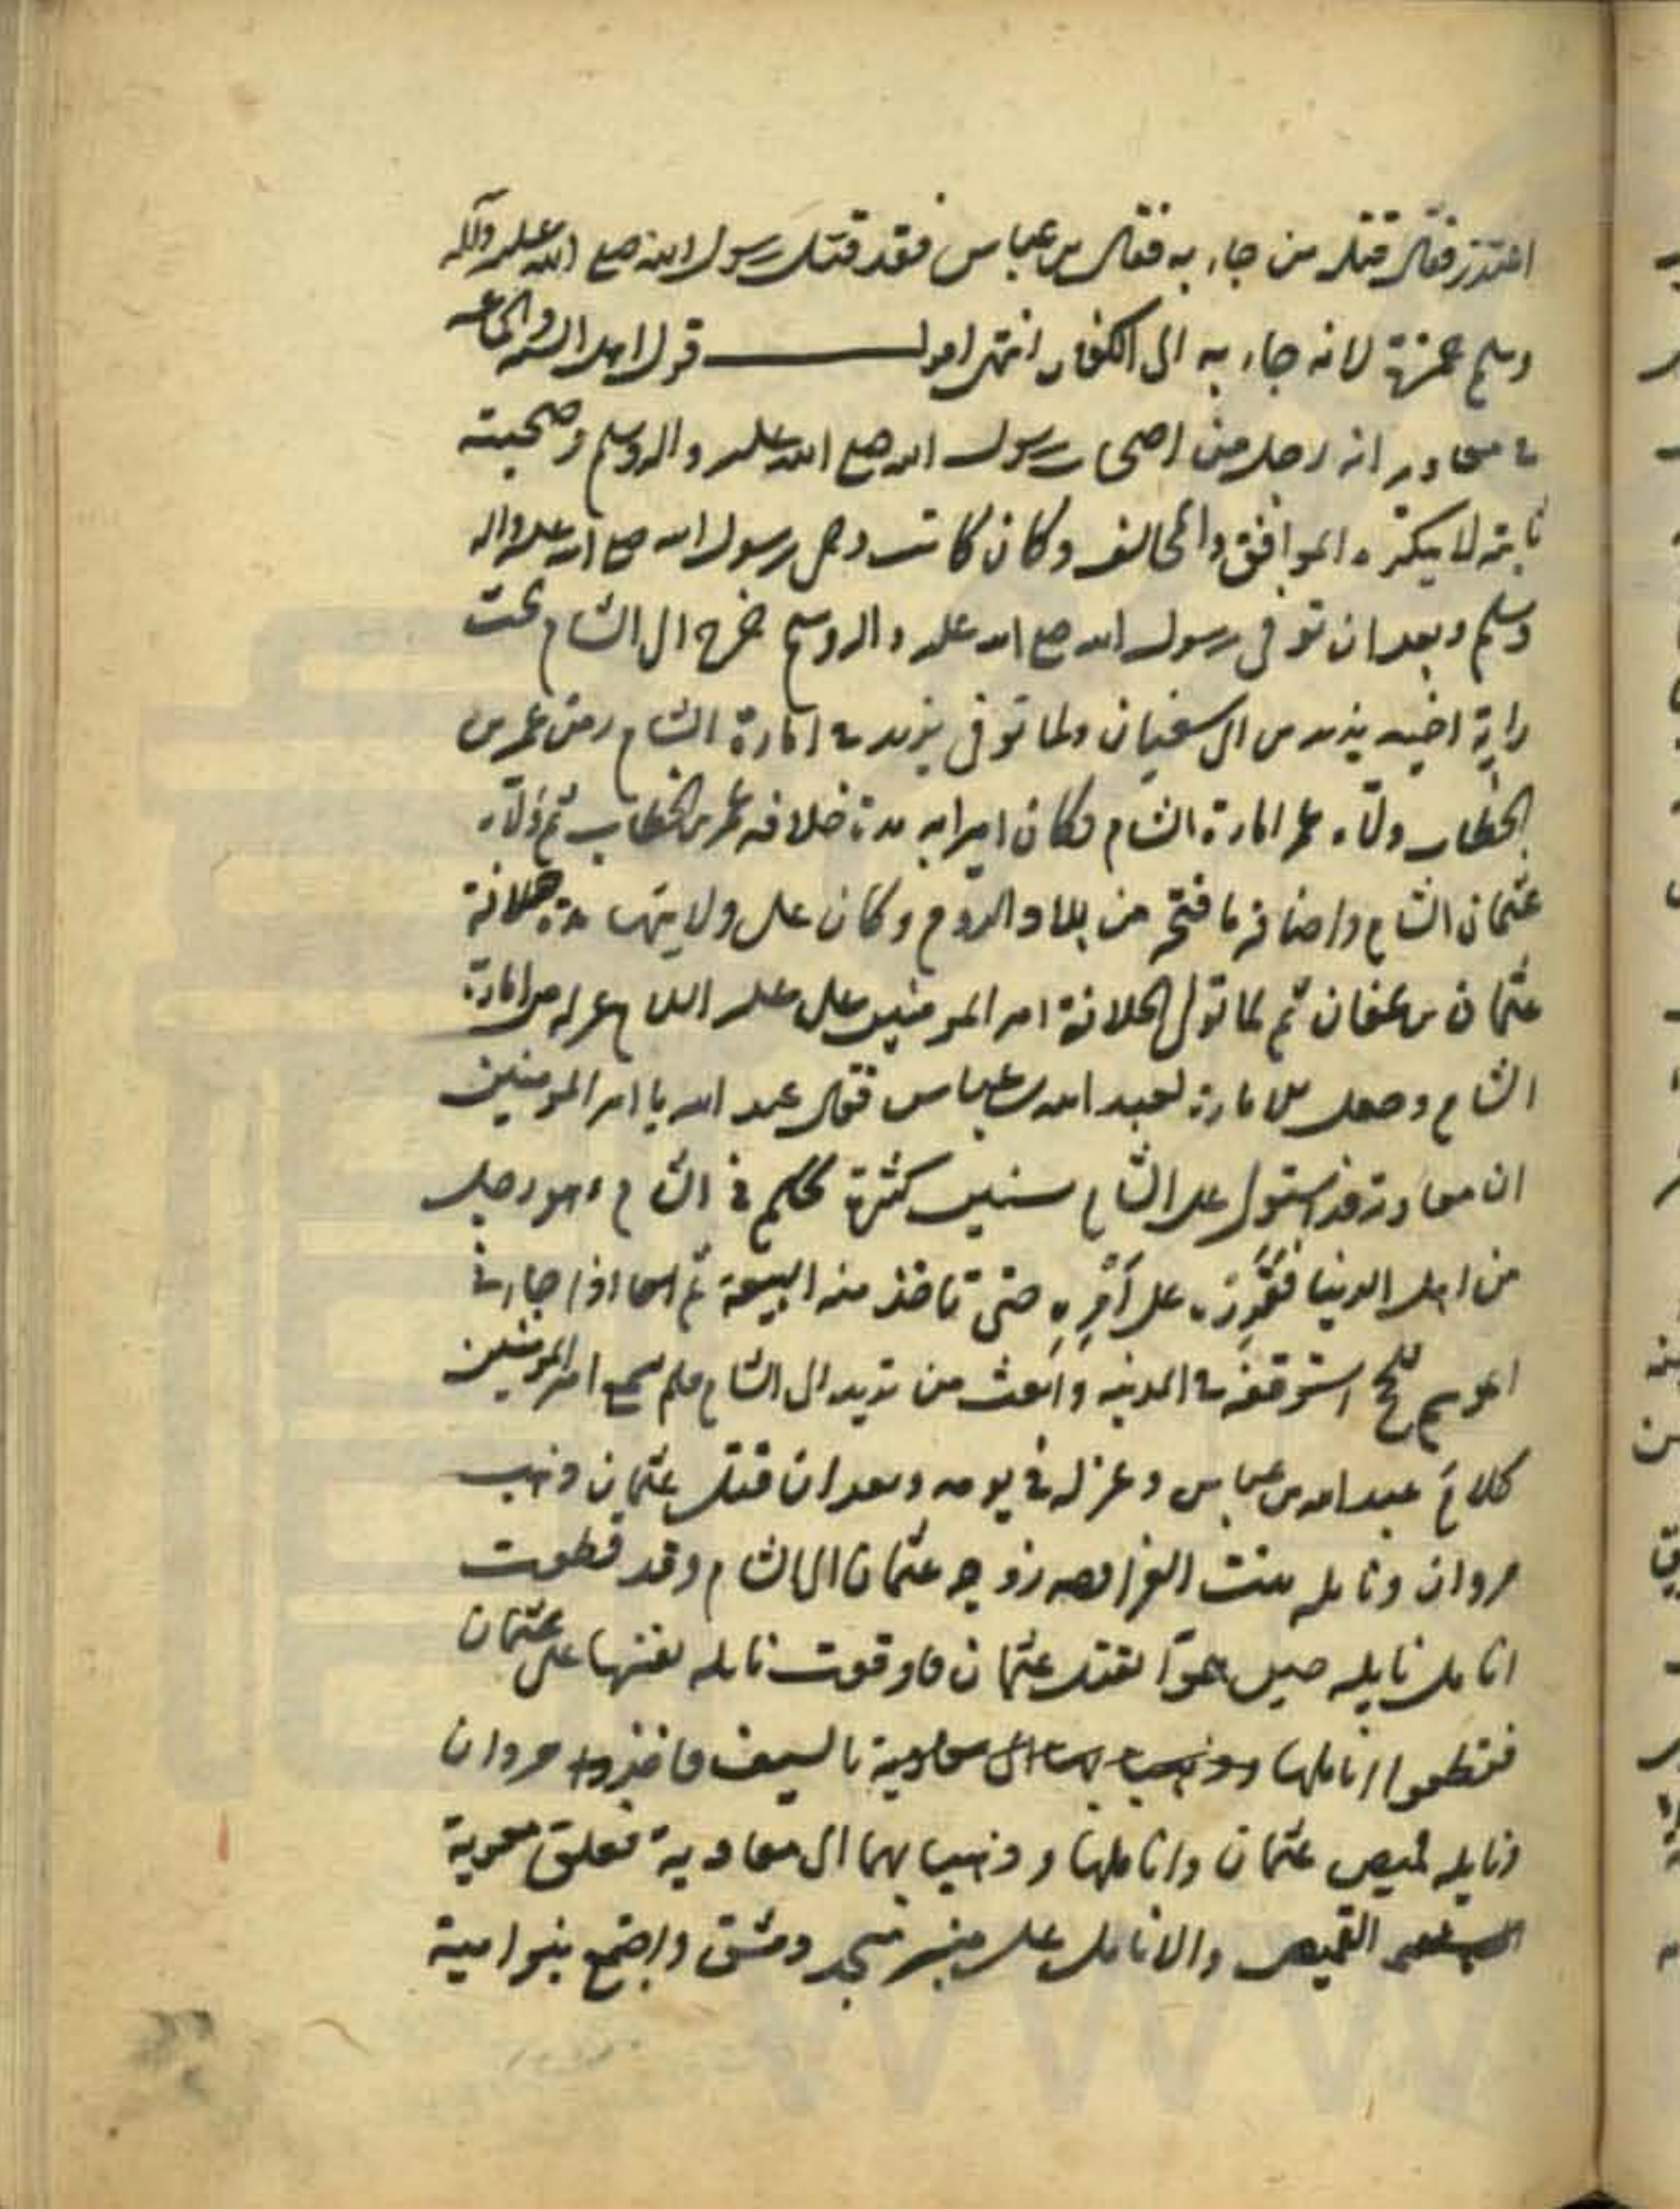 اعتذر فقال قتله من جاء به فقال بن عباس فقد قتل رسول الله صلع الله عليه وآله
وسلم حمزة لانه جاء به الى الكفار انتهى اقول قول اهل السنه والجماعه
في معاوية انه رجل من اصحاب رسول الله صلع الله عليه واله وسلم وصحبته
ثابته لا ينكره الموافق والمخالف وكان كاتب وحي رسول الله صلع الله عليه واله
وسلم وبعد ان توفى رسول الله صلع الله عليه واله وسلم خرج الى الشام تحت
راية اخيه يزيد بن ابى سفيان ولما توفى يزيد في امارة الشام زمن عمر بن
الخطاب ولّاه عمر امارة الشام فكان اميرا به مدة خلافه عمر بن الخطاب ثم ولّاه
عثمان الشام واضافه ما فتح من بلاد الروم وكان على ولايتها مدة خلافة
عثمان بن عفان ثم لما تولى الخلافة امير المومنين على عليه السلام عزله من امارة
الشام وجعل الامارة لعبد الله بن عباس فقال عبد الله يا امير المومنين
ان معاوية قد استولى على الشام سنين كثيرة تحكم في الشام وهو رجل
من اهل الدنيا فقرره على أمره حتى تاخذ منه البيعة ثم اذا جاء في
موسم الحج استوقفه في المدينه وابعث من تريد الى الشام فلم يسمع امير المومنين
كلامَ عبد الله بن عباس وعزله في يومه وبعد ان قتل عثمان وذهب
مروان ونايله بنت الفرافصه زوجه عثمان الى الشام وقد قطعت
انامل نايله حين هموا بقتل عثمان فاوقعت نايله نفسها على عثمان
فقطعوا اناملها وذهب بها الى معاوية بالسيف فاخذوا مروان
ونايله قميص عثمان واناملها وذهبا بهما الى معاوية فعلق معوية
القميص والانامل على منبر مسجد دمشق واجتمع بنوا مية